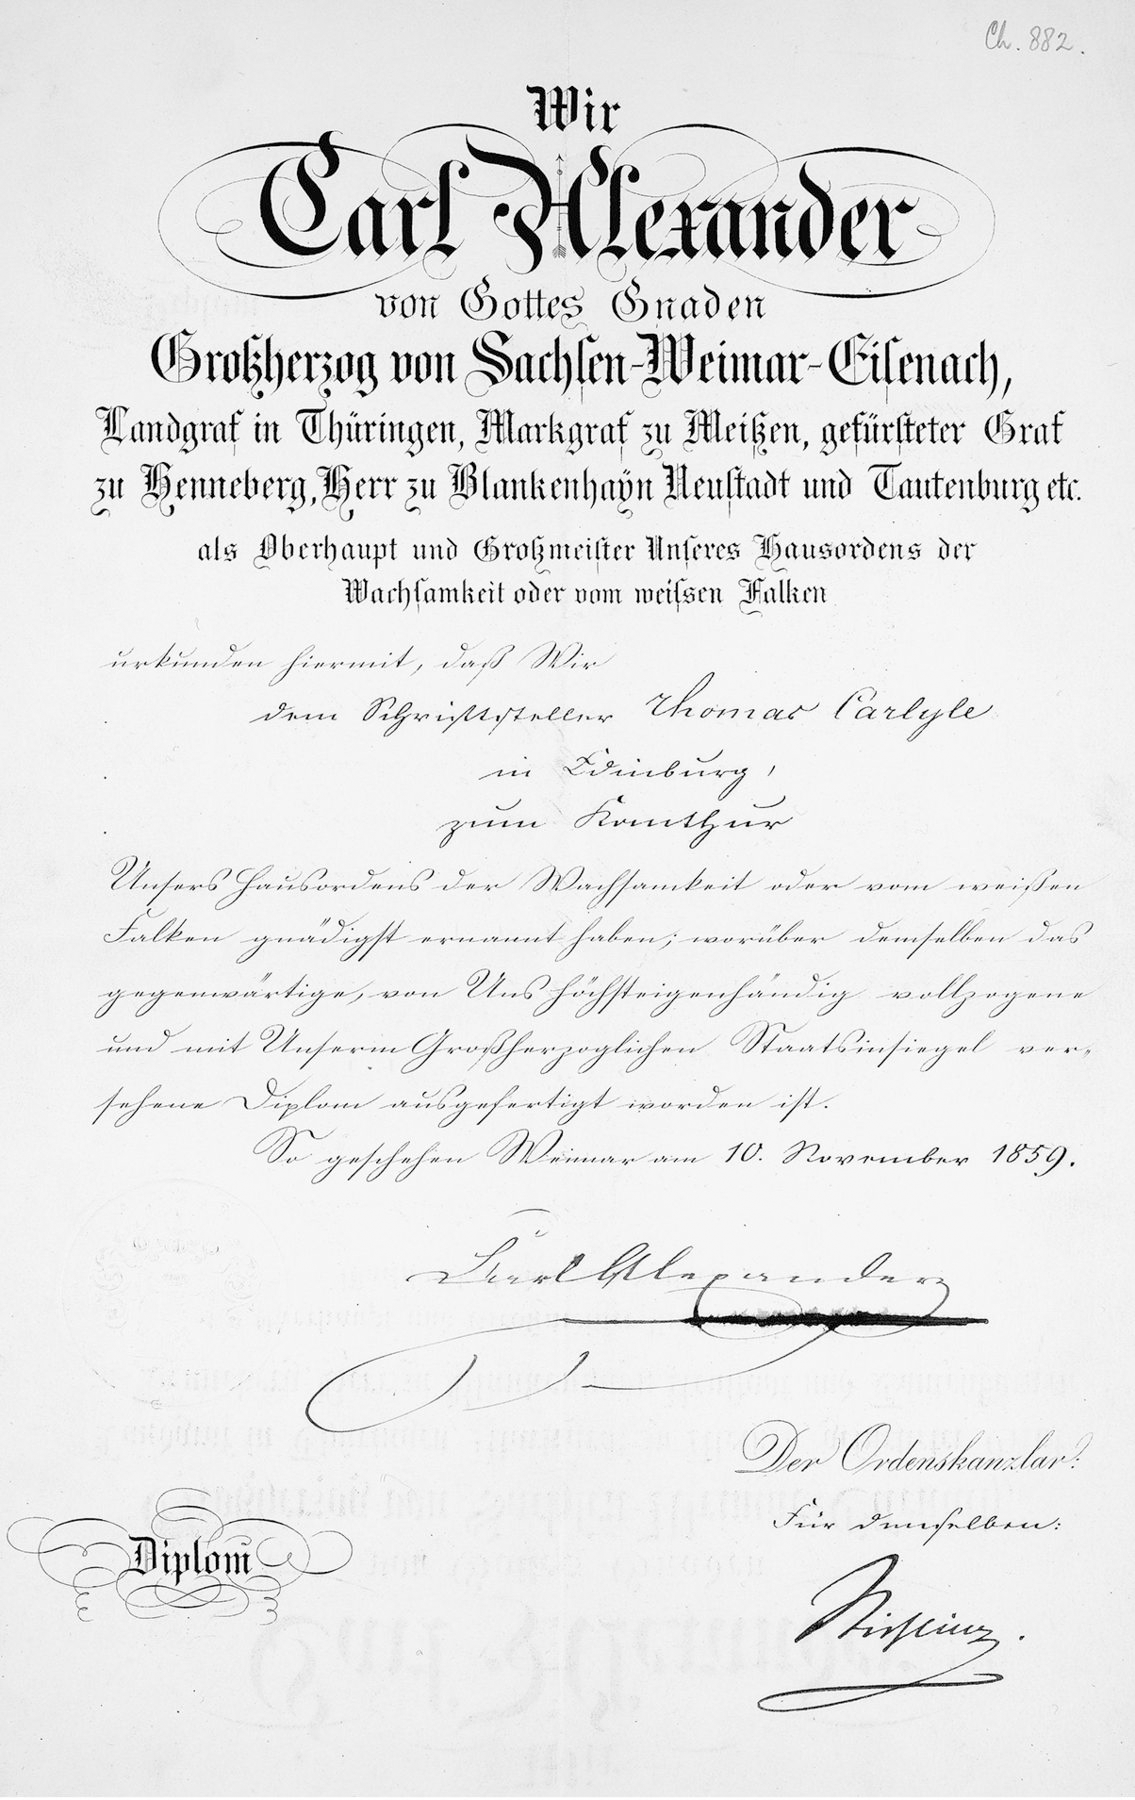 Ch. 882.
Wir
Carl Alexander
von Gottes Gnaden
Großherzog von Sachsen-Weimar-Eisenach,
Landgraf in Thüringen, Markgraf zu Meißen, gefürsteter Graf
zu Henneberg, Herr zu Blankenhayn Neustadt und Tautenburg etc.
als Oberhaupt und Großmeister Unseres Hausordens der
Wachsamkeit oder vom weissen Falken
urkunden hiermit, daß Wir
dem Schriftsteller Thomas Carlyle
in Edinburg,
zum Komthur
Unsers Hausordens der Wachsamkeit oder vom weißen
Falken gnädigst ernannt haben; worüber demselben das
gegenwärtige, von Uns höchsteigenhändig vollzogene
und mit Unserm Großherzoglichen Staatsinsiegel ver-
sehene Diplom ausgefertigt worden ist.
So geschehen Weimar am 10. November 1859.
Carl Alexander
Der Ordenskanzlar:
Für denselben:
Diplom